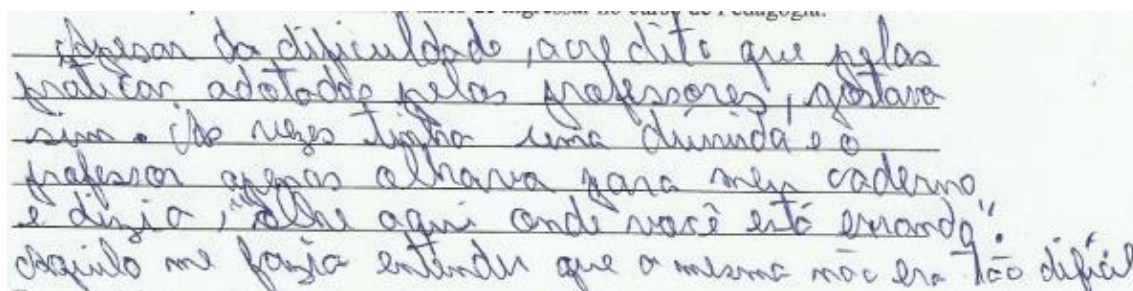 antes de ingressar no curso de Pedagogia.
Apesar da dificuldade, acredito que pelas
práticas adotadas pelos professores, gostava
sim. As vezes tinha uma dúvida e o
professor apenas olhava para meu caderno
e dizia, "olhe aqui onde você está errando".
Aquilo me fazia entender que a mesma não era tão difícil